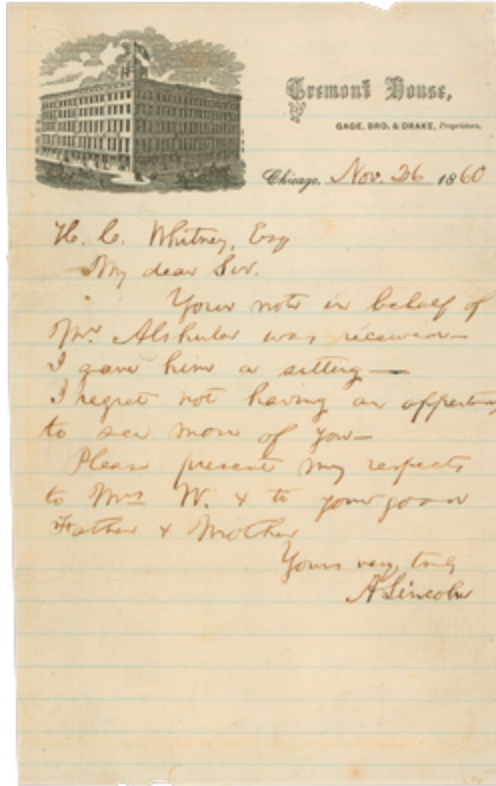 Tremont House,
GAGE, BRO. & DRAKE, Proprietors,
Chicago, Nov. 26 1860
H. C. Whitney, Esq
My dear Sir.
Your note in behalf of
Mr. Alshuler was received—
I gave him a sitting—
I regret not having an opportun
to see more of you—
Please present my respects
to Mrs W. & to your good
Father & Mother
Yours very truly
A Lincoln